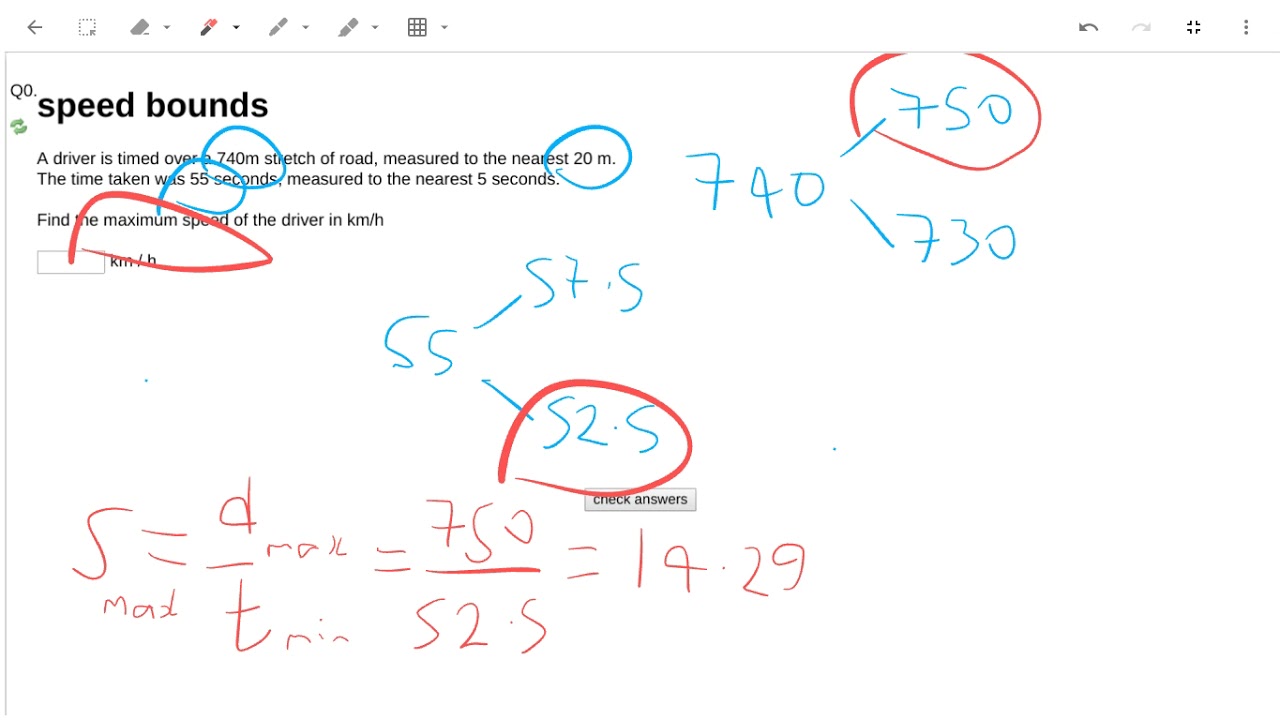 Q0.
speed bounds
A driver is timed over a 740m stretch of road, measured to the nearest 20 m.
The time taken was 55 seconds, measured to the nearest 5 seconds.
Find the maximum speed of the driver in km/h
km / h
750
740
730
57.5
55
52.5
check answers
S max = d max / t min = 750 / 52.5 = 14.29